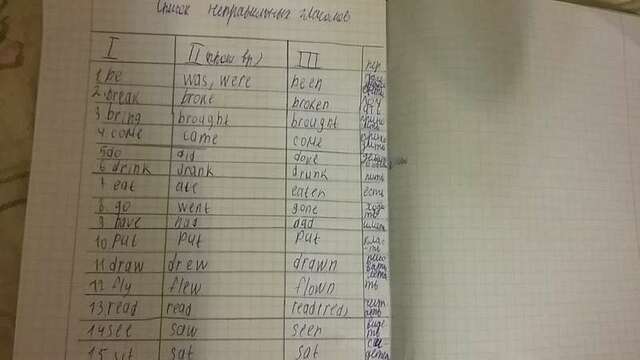 Список неправильных глаголов
I II (прош вр) III пер
1. be was, were been
2. break broke broken
3 bring brought brought
4 come came come
5 do did done
6 drink drank drunk пить
7 eat ate eaten есть
8. go went gone
9 have had had
10 put put put клас-ть
11 draw drew drawn
12 fly flew flown
13 read read read(red)
14 see saw seen виде ть
15. sit sat sat